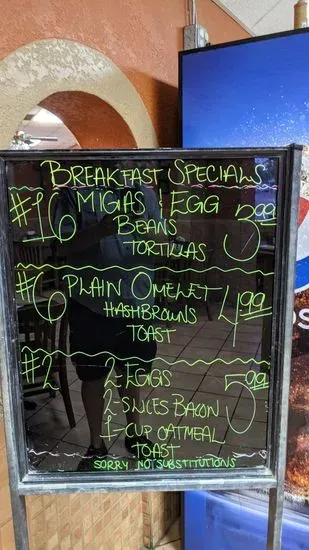 BREAKFAST SPECIALS
#16 MIGIAS & EGG 5.99
BEANS
TORTILLAS
#6 PLAIN OMELET 4.99
HASHBROWNS
TOAST
#2 2-EGGS 5.99
2-SLICES BACON
1-CUP OATMEAL
TOAST
SORRY NOT SUBSTITUTIONS